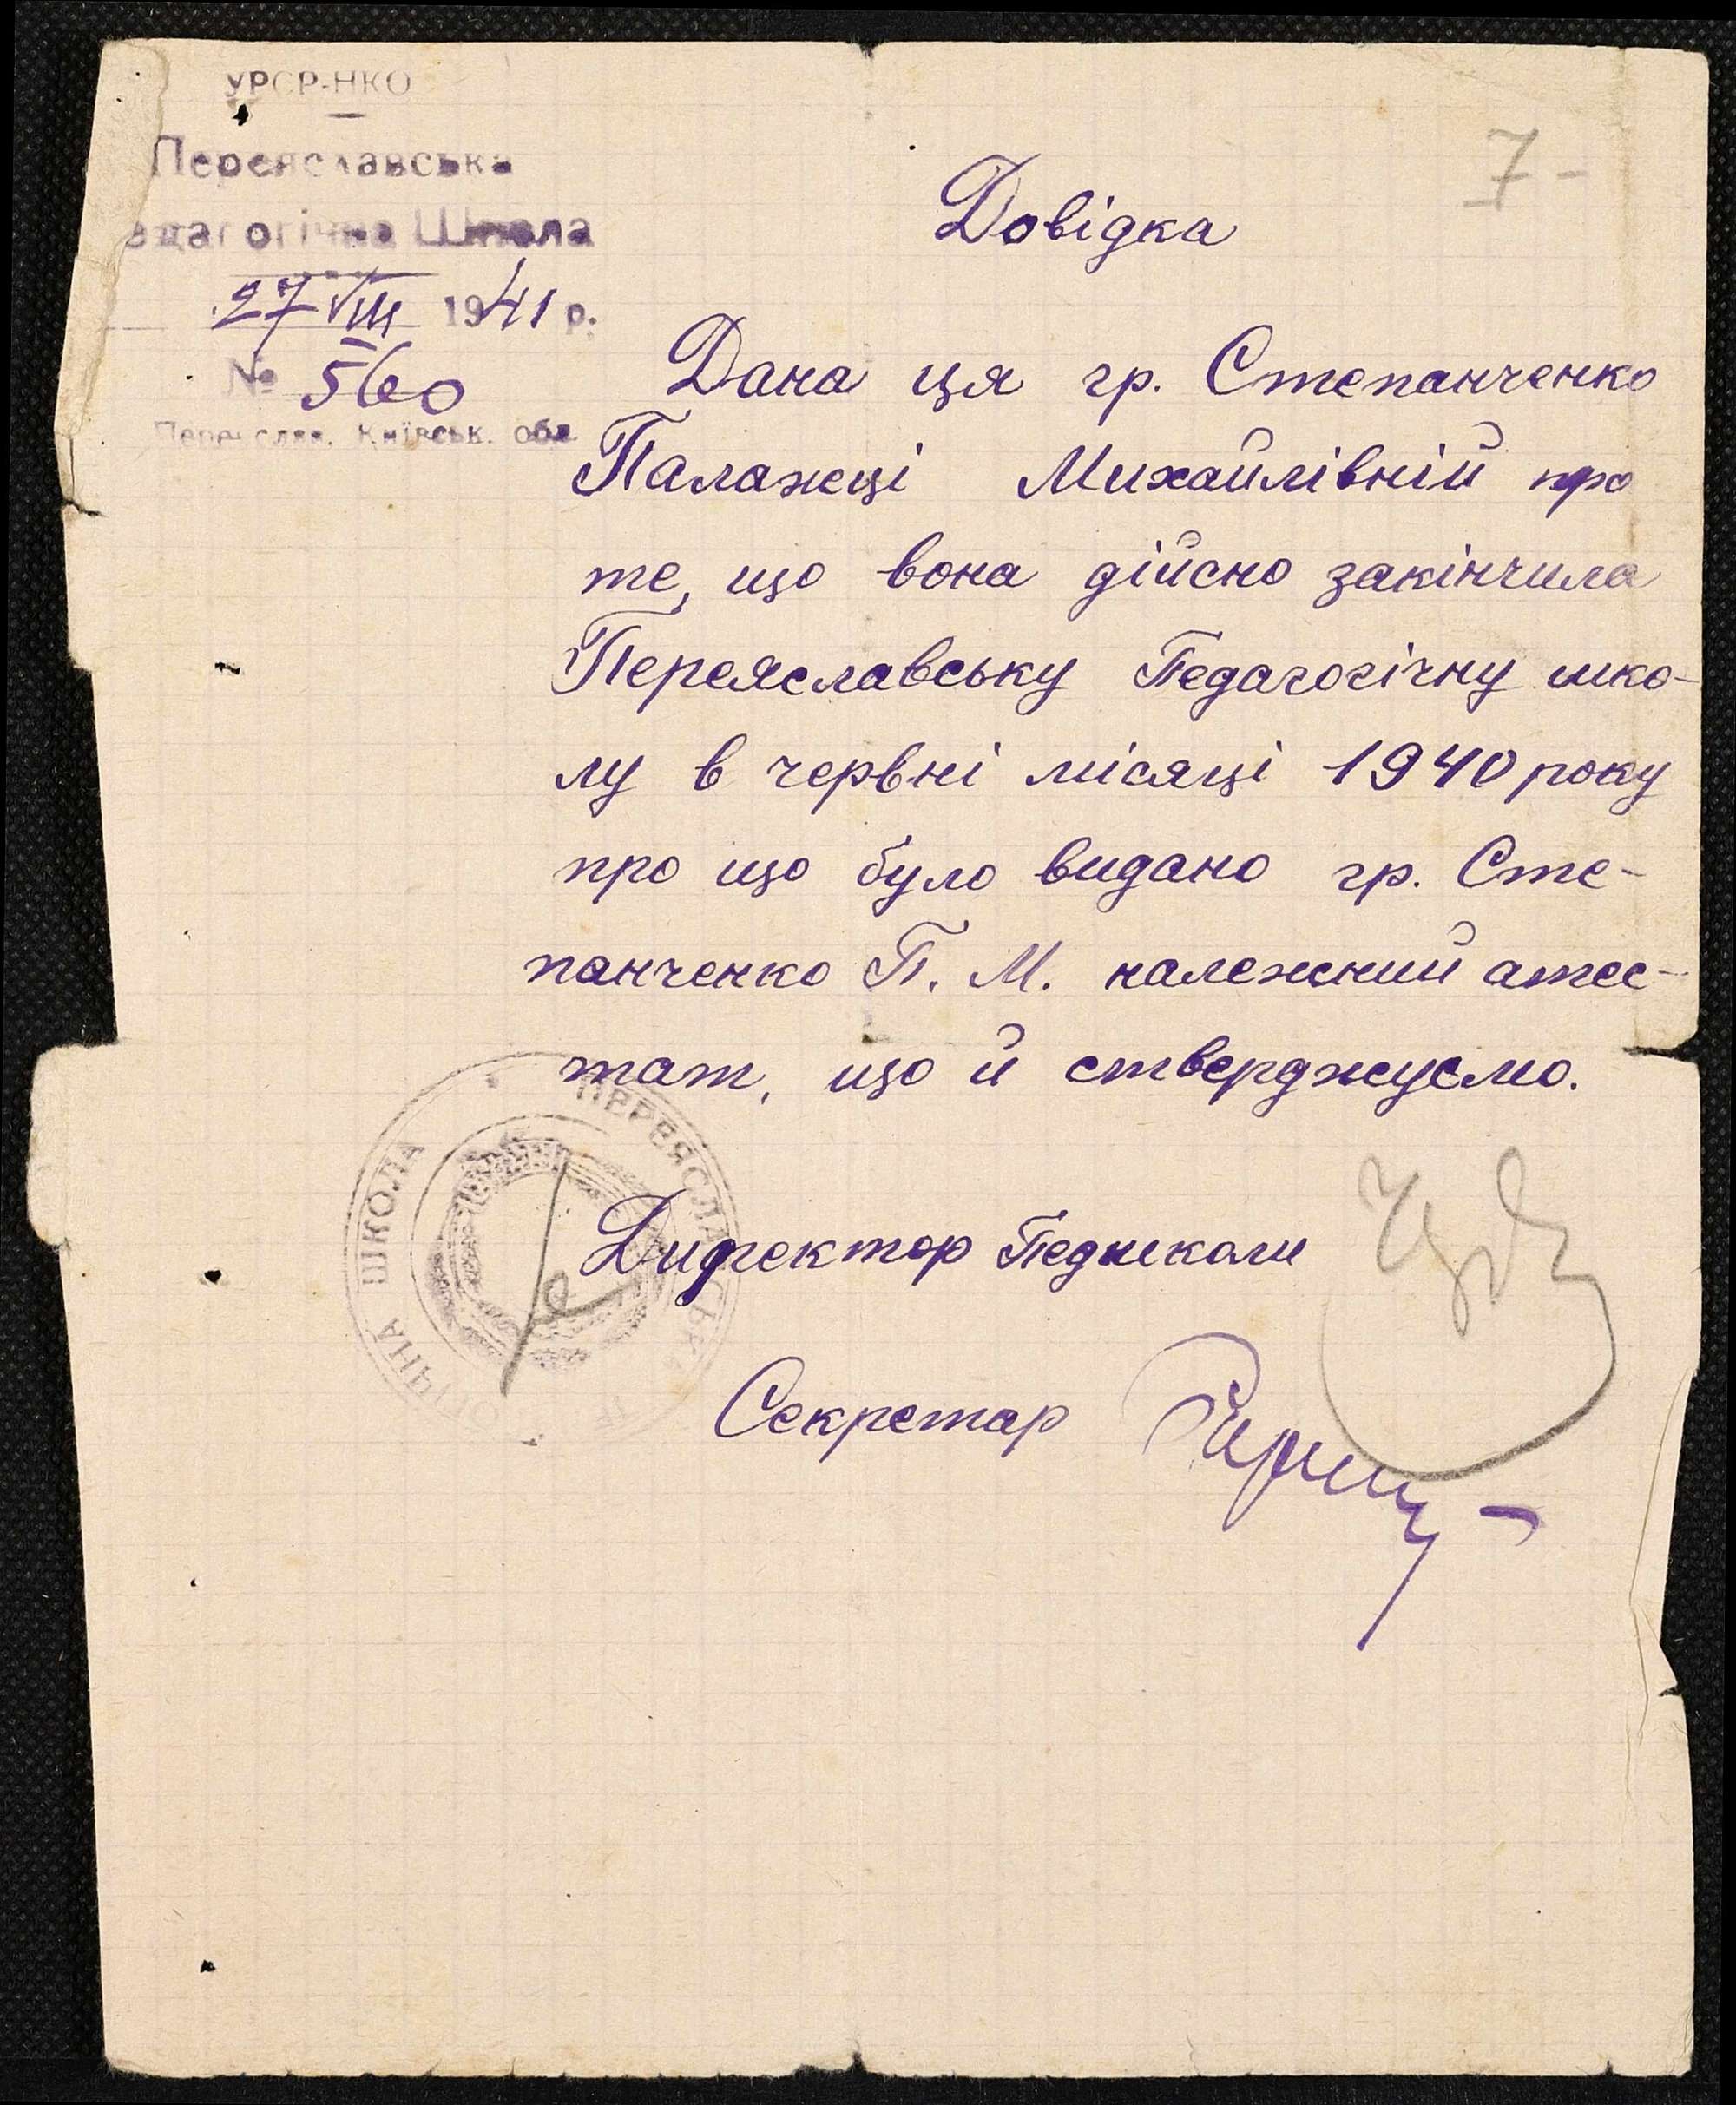 УРСР-НКО
Переяславська
едагогічна Школа
27 VIII 1941 р.
№ 560
Переяслав. Київськ. обл
7-
Довідка
Дана ця гр. Степанченко
Палажці Михайлівній про
те, що вона дійсно закінчила
Переяславську Педагогічну шко-
лу в червні місяці 1940 року
про що було видано гр. Сте-
панченко П. М. належний атес-
тат, що й стверджуємо.
Директор Педшколи
Секретар
ПЕРЕЯСЛАВСЬКА ШКОЛА